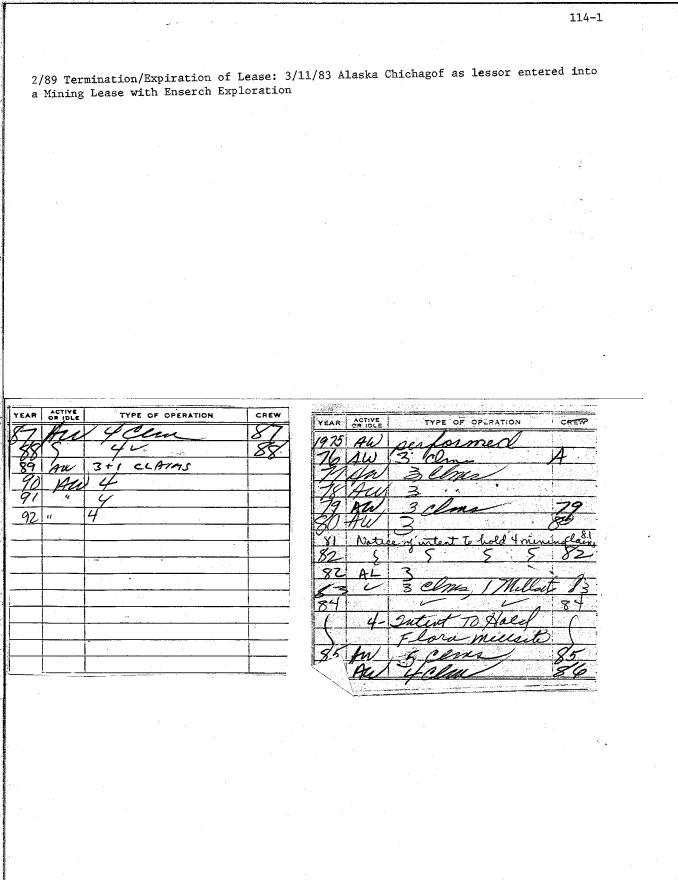 114-1
2/89 Termination/Expiration of Lease: 3/11/83 Alaska Chichagof as lessor entered into
a Mining Lease with Enserch Exploration
YEAR ACTIVE OR IDLE TYPE OF OPERATION CREW
87 AW 4 Clm 87
88 4 ✓ 88
89 AW 3+1 CLAIMS
90 AW 4
91 " 4
92 " 4
YEAR ACTIVE OR IDLE TYPE OF OPERATION CREW
1975 AW performed
76 AW 3 Clms A
77 AW 3 Clms
78 AW 3 " "
79 AW 3 Clms 79
80 AW 3 80
81 Notice of intent to hold 4 mining claims 81
82 82
82 AL 3
83 ✓ 3 Clms, 1 Millsit 83
84 ✓ ✓ 84
4- Intent To Hold
Flora millsite
85 AW 5 Clms 85
AW 4 Clm 86